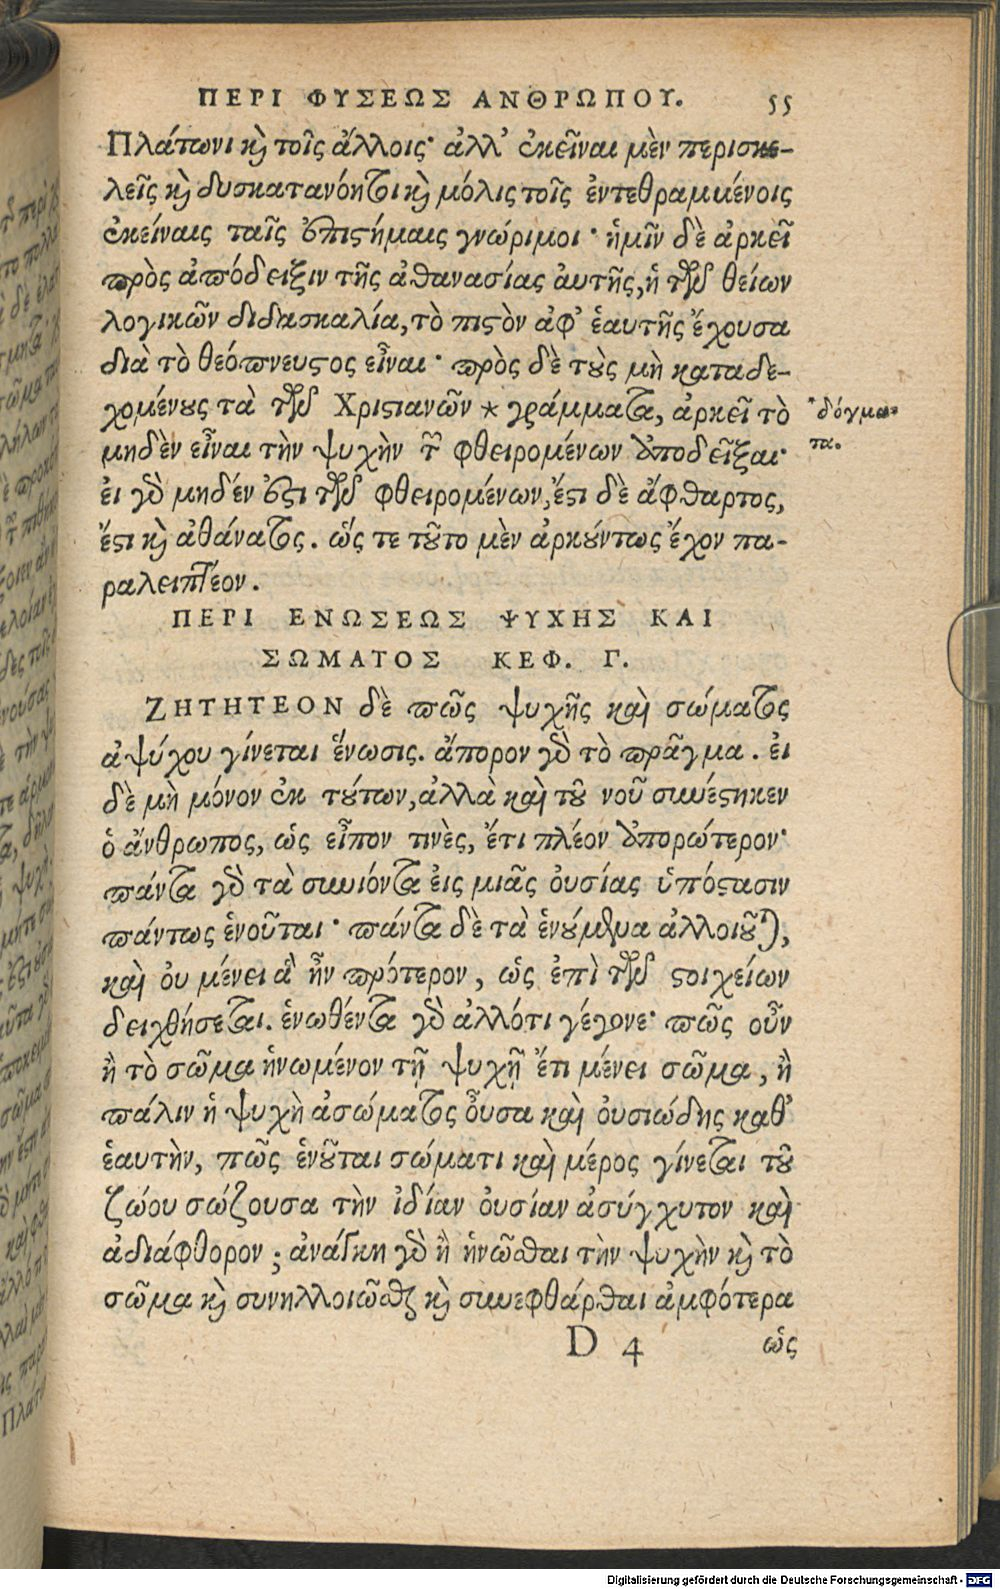 ΠΕΡΙ ΦΥΣΕΩΣ ΑΝΘΡΩΠΟΥ. 55
Πλάτωνι καὶ τοῖς ἄλλοις· ἀλλ' ἐκεῖναι μὲν περισκε-
λεῖς καὶ δυσκατανόητοι καὶ μόλις τοῖς ἐντεθραμμένοις
ἐκείναις ταῖς ἐπιστήμαις γνώριμοι· ἡμῖν δὲ ἀρκεῖ
πρὸς ἀπόδειξιν τῆς ἀθανασίας ἀυτῆς, ἡ τῶν θείων
λογικῶν διδασκαλία, τὸ πιστὸν ἀφ' ἑαυτῆς ἔχουσα
διὰ τὸ θεόπνευστος εἶναι· πρὸς δὲ τοὺς μὴ καταδε-
χομένους τὰ τῶν Χριστιανῶν * γράμματα, ἀρκεῖ τὸ
*δόγμα-
τα.
μηδὲν εἶναι τὴν ψυχὴν τῶν φθειρομένων ἀποδεῖξαι·
ἐι γὰρ μηδέν ἐστι τῶν φθειρομένων, ἔστι δὲ ἄφθαρτος,
ἔστι καὶ αθάνατος. ὥς τε τοῦτο μὲν ἀρκούντως ἔχον πα-
ραλειπτέον.
ΠΕΡΙ ΕΝΩΣΕΩΣ ΨΥΧΗΣ ΚΑΙ
ΣΩΜΑΤΟΣ ΚΕΦ. Γ.
ΖΗΤΗΤΕΟΝ δὲ πῶς ψυχῆς καὶ σώματος
αψύχου γίνεται ἕνωσις. ἄπορον γὰρ τὸ πρᾶγμα. ἐι
δὲ μὴ μόνον ἐκ τούτων, ἀλλὰ καὶ τοῦ νοῦ συνέστηκεν
ὁ ἄνθρωπος, ὡς εἶπον τινὲς, ἔτι πλέον ἀπορώτερον·
πάντα γὰρ τὰ συνιόντα ἐις μιᾶς ὀυσίας ὑπόστασιν
πάντως ἑνοῦται· πάντα δὲ τὰ ἑνούμενα ἀλλοιοῦται,
καὶ ὀυ μένει ἃ ἦν πρότερον, ὡς ἐπὶ τῶν στοιχείων
δειχθήσεται. ἑνωθέντα γὰρ ἀλλότι γέγονε· πῶς οὖν
ἢ τὸ σῶμα ἡνωμένον τῇ ψυχῇ ἔτι μένει σῶμα, ἢ
πάλιν ἡ ψυχὴ ἀσώματος οὖσα καὶ ὀυσιώδης καθ'
ἑαυτὴν, πῶς ἑνοῦται σώματι καὶ μέρος γίνεται τοῦ
ζώου σώζουσα τὴν ἰδίαν ὀυσίαν ἀσύγχυτον καὶ
ἀδιάφθορον; ἀνάγκη γὰρ ἢ ἡνῶσθαι τὴν ψυχὴν καὶ τὸ
σῶμα καὶ συνηλλοιῶσθαι καὶ συνεφθάρθαι ἀμφότερα
D 4 ὡς
Digitalisierung gefördert durch die Deutsche Forschungsgemeinschaft - DFG